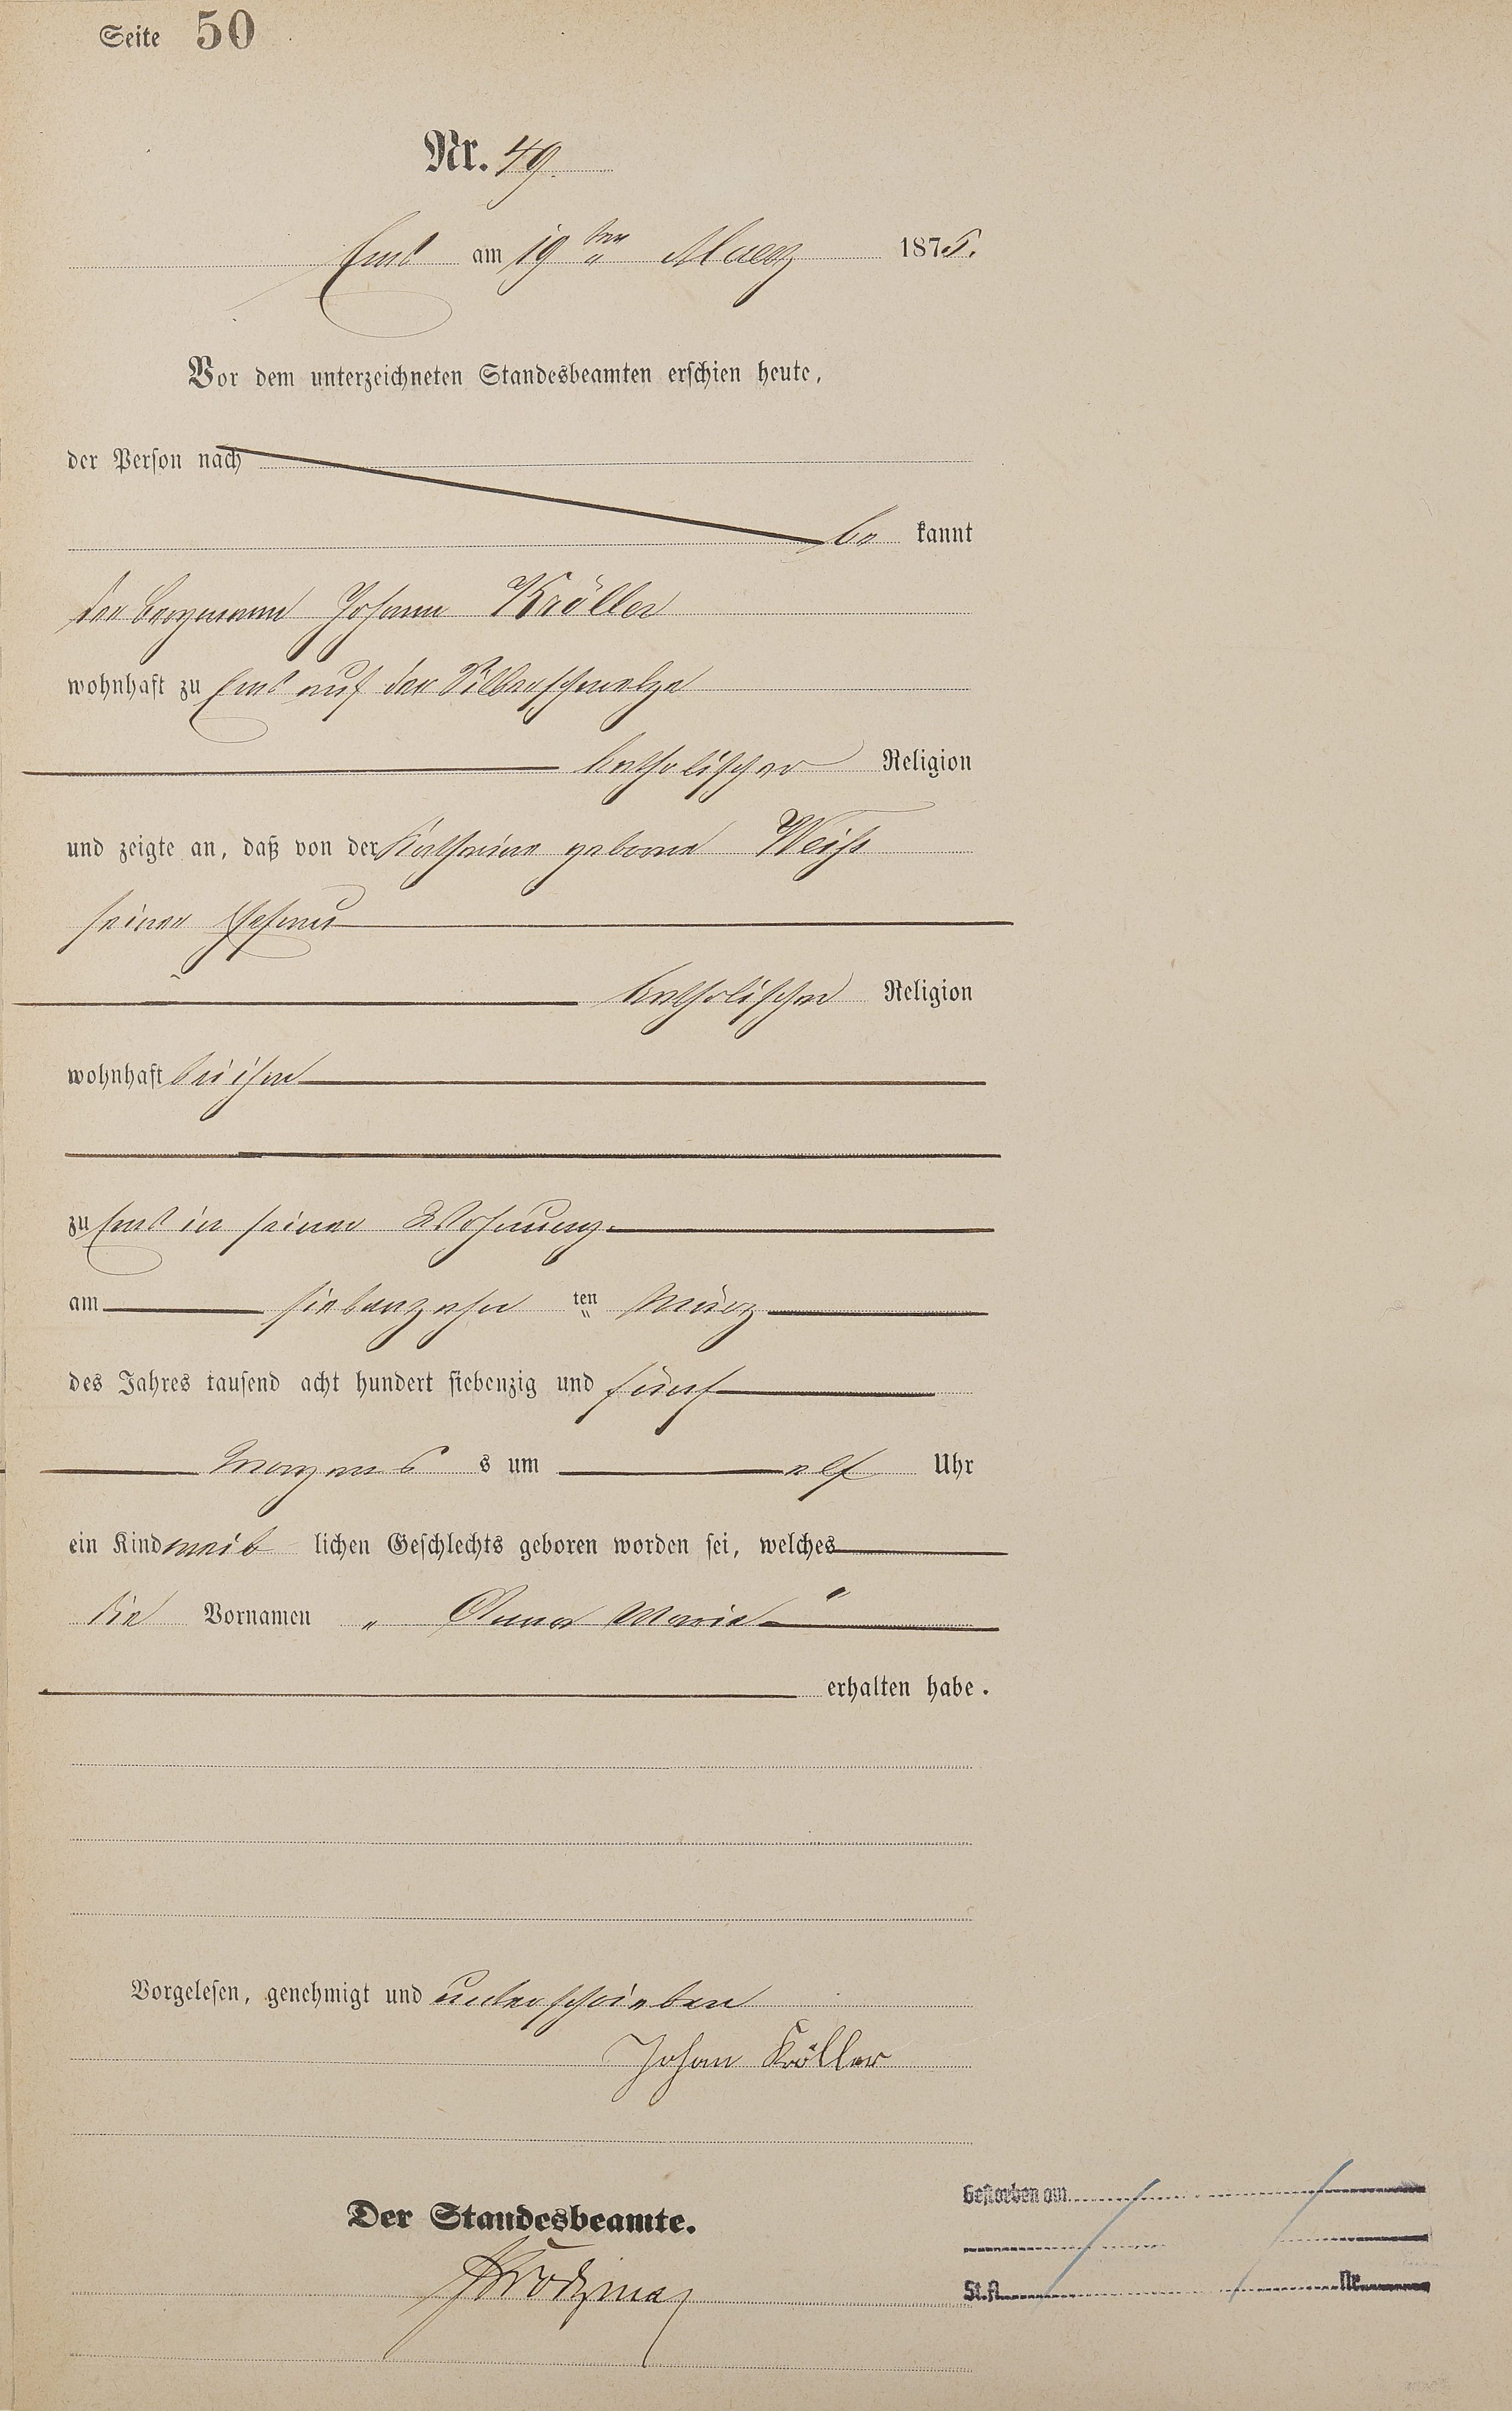 Seite 50
Nr. 49.
Ems am 19ten Maerz 1875.
Vor dem unterzeichneten Standesbeamten erschien heute,
der Person nach
be kannt
der Bergmann Johann Kröller
wohnhaft zu Ems auf der Silberschmelze
katholischer Religion
und zeigte an, daß von der Katharina geborne Weiß
seiner Ehefrau
katholischer Religion
wohnhaft bei ihm
zu Ems in seiner Wohnung
am siebenzehn ten März
des Jahres tausend acht hundert siebenzig und fünf
Morgens s um elf Uhr
ein Kind weib lichen Geschlechts geboren worden sei, welches
die Vornamen „ Anna Maria “
erhalten habe.
Vorgelesen, genehmigt und unterschrieben
Johan Kröller
Der Standesbeamte.
Gestorben am
St.A. Nr.